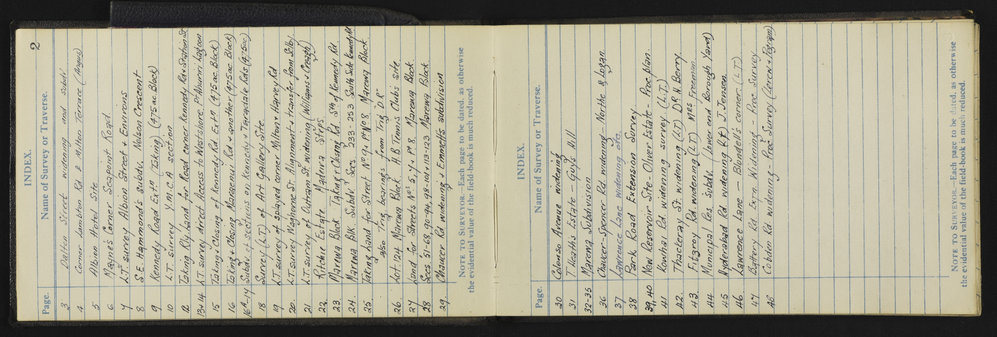 2
INDEX.
Page. Name of Survey or Traverse.
3 Dalton Street widening and subdn
4 Corner Lambton Rd & Milton Terrace (Angus)
5 Albion Hotel Site
6 Payne's Corner Seapoint Road
7 L.T. survey Albion Street & Environs
8 S.E. Hammond's Subdn. Wilson Crescent
9 Kennedy Road Extn (Taking) (475 ac. Block)
10 L.T. survey Y.M.C.A section
12 Taking Rly land for Road corner Kennedy Rd & Station St.
13 & 14 L.T survey direct Access to Westshore, Pt Ahuriri Lagoon
15 Taking & Closing of Kennedy Rd Extn (475 ac. Block)
16 Taking & Closing Marsenus Rd & another (475 ac Block)
Subdn of sections on Kennedy & Taradale Rds (475 ac)
18 Survey (L.T.) of Art Gallery Site
19 L.T survey of splayed corner Milton & Harvey Rd
20 L.T survey Waghorne St. Alignment & transfer from Silby
21 L.T. survey of Outram St. widening (Williams & Creagh)
22 Ritchie Estate Madeira Steps
23 Marewa Block Taking & Closing Rd Sth of Kennedy Rd
24 Marewa Blk Subdn Secs 233-253 South Side Kennedy Rd
25 Taking land for Street No 9 & Pt No 8 Marewa Block
also Trig bearings from Trig "D.R"
26 Lot 24 Marewa Block H.B Tennis Club's site
27 Land for Streets Nos 5, 7 & Pt 8. Marewa Block
28 Secs 51-68, 90-94, 98-101 & 113-123 Marewa Block
29 Chaucer Rd widening & Emmett's subdivision
NOTE TO SURVEYOR.—Each page to be dated, as otherwise
the evidential value of the field-book is much reduced.
INDEX.
Page. Name of Survey or Traverse.
30 Colenso Avenue widening
31 T Heaths Estate - Guys Hill
32-35 Marewa Subdivision
36 Chaucer-Spencer Rd. widening Northe & Logan
37 Lawrence Lane widening etc.
38 Park Road Extension Survey
39, 40 New Reservoir Site - Oliver Estate - Proc. plan
41 Kowhai Rd. widening survey (L.T)
42. Thackeray St. widening (L.T) Dr H. Berry.
43. Fitzroy Rd widening (L.T) Mrs Freeman
44 Municipal Res. Subdn (Answered Borough Yard)
45 Hyderabad Rd widening (L.T) J. Jensen
46 Lawrence Lane - Blundell's corner (L.T)
47 Battery Rd. Extra Widening - Proc. Survey
48 Cobden Rd widening - Procn Survey
NOTE TO SURVEYOR.—Each page to be dated, as otherwise
the evidential value of the field-book is much reduced.